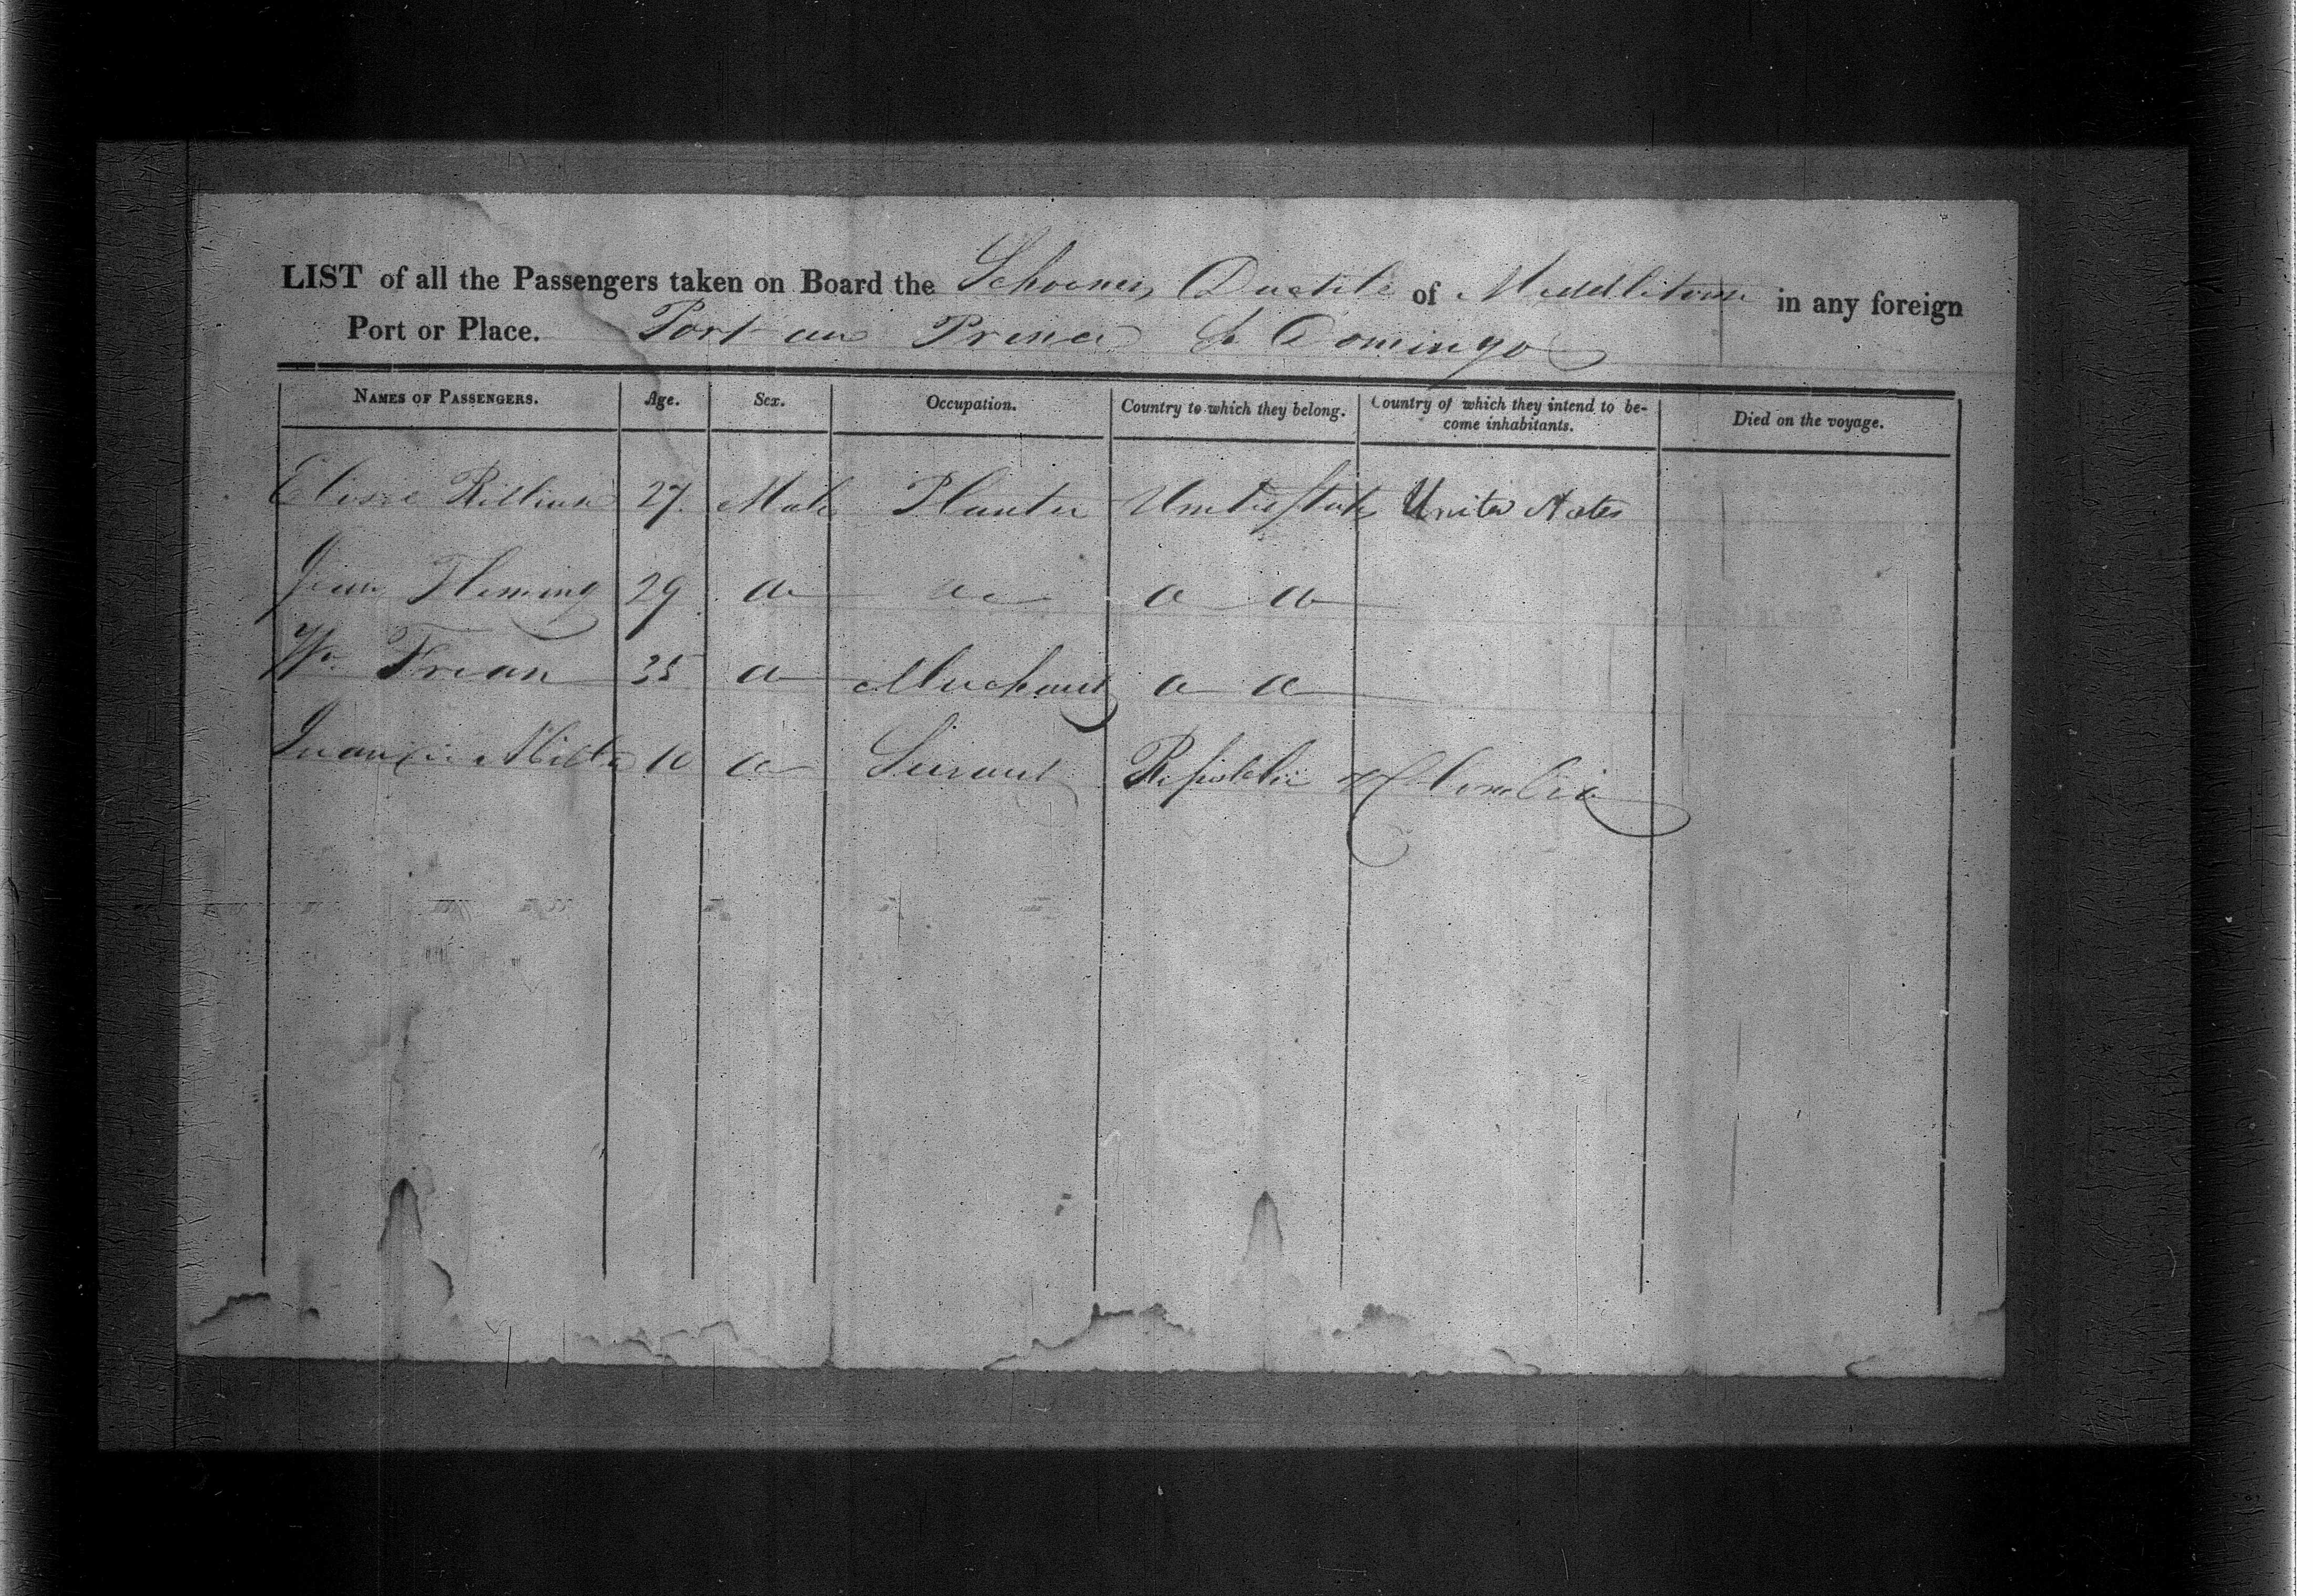 LIST of all the Passengers taken on Board the Schooner Ductile of Middletown in any foreign
Port or Place. Port au Prince St Domingo
NAMES OF PASSENGERS. Age. Sex. Occupation. Country to which they belong. Country of which they intend to be-
come inhabitants. Died on the voyage.
27 Male Planter United States United States
Fleming 29 do do do do
Wm 35 do Merchant do do
10 do Servant Republic of Colombia